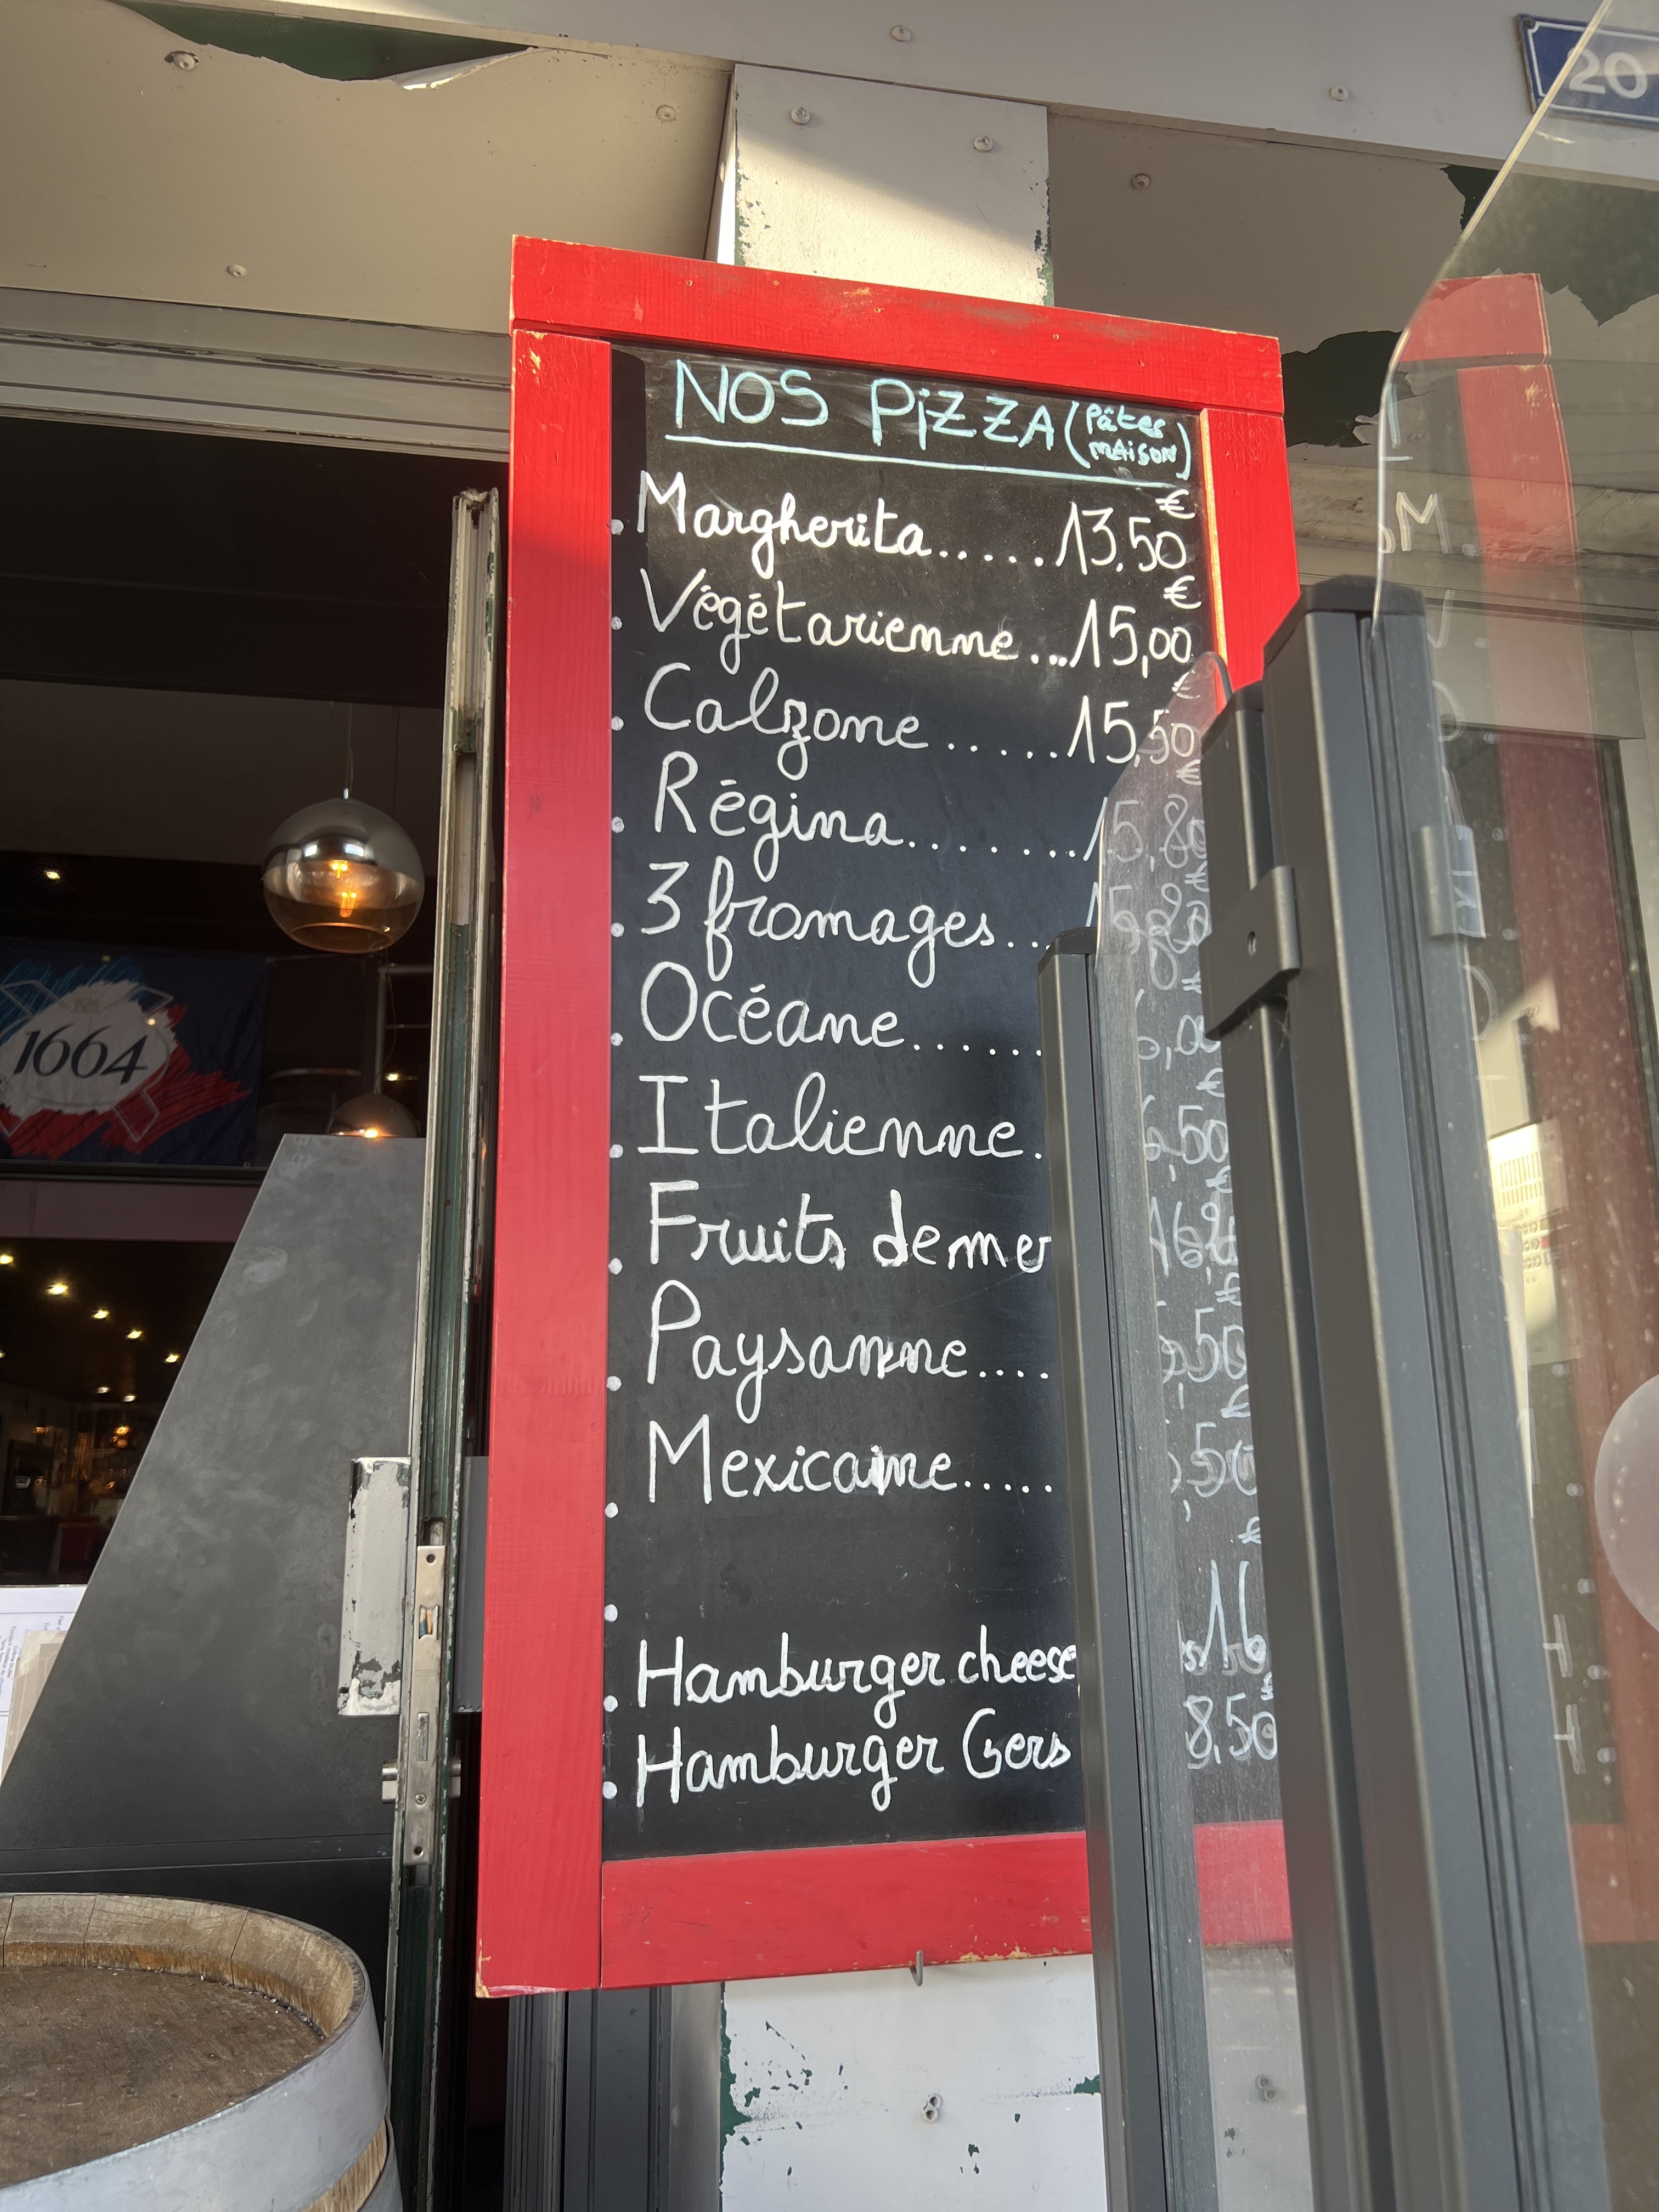 20
NOS PiZZA (Pâtes maison)
Margherita.....13,50 €
Végétarienne...15,00 €
Calzone.....15,50 €
Régina........15,80 €
3 fromages...
Océane......
Italienne.
Fruits de mer
Paysanne....
Mexicaine.....
Hamburger cheese
Hamburger Gers 8,50
1664